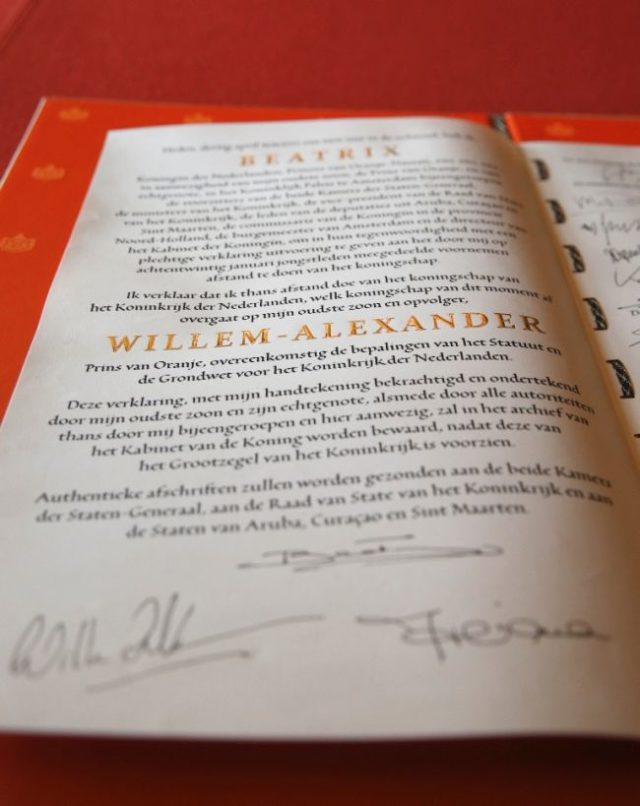 Heden, dertig april
BEATRIX
Koningin der Nederlanden, Prinses van Oranje-Nassau,
in aanwezigheid van mijn zoon, de Prins van Oranje, en zijn
echtgenote, in het Koninklijk Paleis te Amsterdam
de voorzitters van de beide Kamers der Staten-Generaal,
de ministers van het Koninkrijk, de vice-president van de Raad van State
van het Koninkrijk, de leden van de deputaties uit Aruba, Curaçao en
Sint Maarten, de commissaris van de Koningin in de provincie
Noord-Holland, de burgemeester van Amsterdam en de directeur van
het Kabinet der Koningin, om in hun tegenwoordigheid met een
plechtige verklaring uitvoering te geven aan het door mij op
achtentwintig januari jongstleden meegedeelde voornemen
afstand te doen van het koningschap.
Ik verklaar dat ik thans afstand doe van het koningschap van
het Koninkrijk der Nederlanden, welk koningschap van dit moment af
overgaat op mijn oudste zoon en opvolger,
WILLEM-ALEXANDER
Prins van Oranje, overeenkomstig de bepalingen van het Statuut en
de Grondwet voor het Koninkrijk der Nederlanden.
Deze verklaring, met mijn handtekening bekrachtigd en ondertekend
door mijn oudste zoon en zijn echtgenote, alsmede door alle autoriteiten
thans door mij bijeengeroepen en hier aanwezig, zal in het archief van
het Kabinet van de Koning worden bewaard, nadat deze van
het Grootzegel van het Koninkrijk is voorzien.
Authentieke afschriften zullen worden gezonden aan de beide Kamers
der Staten-Generaal, aan de Raad van State van het Koninkrijk en aan
de Staten van Aruba, Curaçao en Sint Maarten.